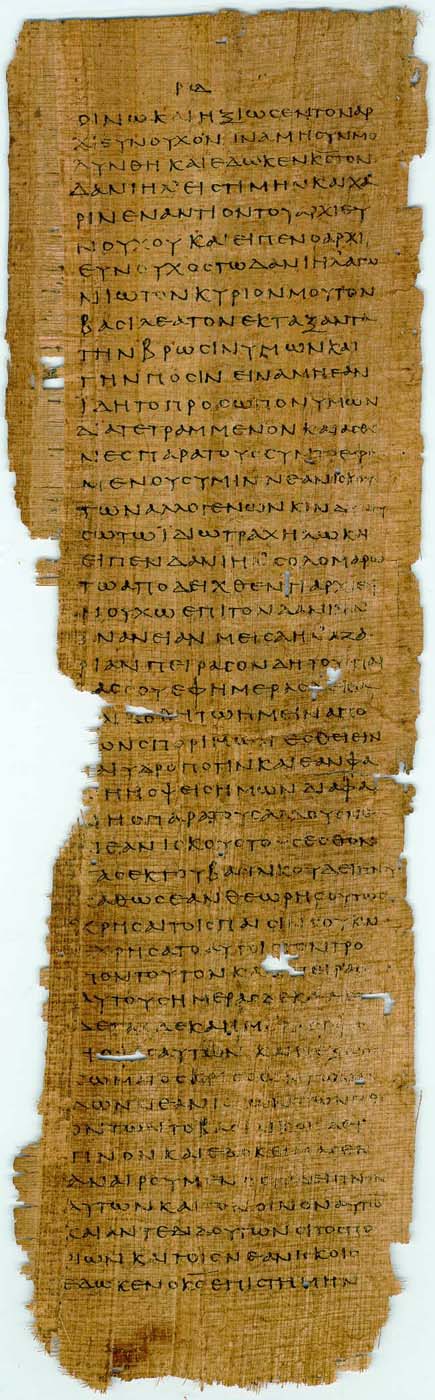 ΟΙΝΩ ΚΑΙ ΗΞΙΩΣΕΝ ΤΟΝ ΑΡ
ΧΙΕΥΝΟΥΧΟΝ ΙΝΑ ΜΗ ΣΥΝΜΟ
ΛΥΝΘΗ ΚΑΙ ΕΔΩΚΕΝ ΚΣ ΤΟΝ
ΔΑΝΙΗΛ ΕΙΣ ΤΙΜΗΝ ΚΑΙ ΧΑ
ΡΙΝ ΕΝΑΝΤΙΟΝ ΤΟΥ ΑΡΧΙΕΥ
ΝΟΥΧΟΥ ΚΑΙ ΕΙΠΕΝ Ο ΑΡΧΙ
ΕΥΝΟΥΧΟΣ ΤΩ ΔΑΝΙΗΛ ΑΓΩ
ΝΙΩ ΤΟΝ ΚΥΡΙΟΝ ΜΟΥ ΤΟΝ
ΒΑΣΙΛΕΑ ΤΟΝ ΕΚΤΑΞΑΝΤΑ
ΤΗΝ ΒΡΩΣΙΝ ΥΜΩΝ ΚΑΙ
ΤΗΝ ΠΟΣΙΝ ΕΙΝΑ ΜΗ ΕΑΝ
ΙΔΗ ΤΟ ΠΡΟΣΩΠΟΝ ΥΜΩΝ
ΔΙΑΤΕΤΡΑΜΜΕΝΟΝ ΚΑΙ ΑΣΘΕ
ΝΕΣ ΠΑΡΑ ΤΟΥΣ ΣΥΝΤΡΕΦΟ
ΜΕΝΟΥΣ ΥΜΙΝ ΝΕΑΝΙΣΚΟΥΣ
ΤΩΝ ΑΛΛΟΓΕΝΩΝ ΚΙΝΔΥΝΕΥ
ΣΩ ΤΩ ΙΔΙΩ ΤΡΑΧΗΛΩ ΚΑΙ
ΕΙΠΕΝ ΔΑΝΙΗΛ
ΤΩ ΑΠΟΔΕΙΧΘΕΝΤΙ ΑΡΧΙΕΥ
ΝΟΥΧΩ ΕΠΙ ΤΟΝ ΔΑΝΙΗΛ
ΑΝΑΝΕΙΑΝ ΜΕΙΣΑΗΛ ΑΖΑ
ΡΙΑΝ ΠΕΙΡΑΣΟΝ ΔΗ ΤΟΥΣ ΠΑΙ
ΔΑΣ ΣΟΥ ΕΦ ΗΜΕΡΑΣ
ΔΟΘΗΤΩ ΗΜΕΙΝ ΑΠΟ
ΕΣΘΕΙΕΙΝ
ΥΔΡΟΠΟΤΙΝ ΚΑΙ ΕΑΝ ΦΑ
ΝΗ Η ΟΨΕΙΣ ΗΜΩΝ ΔΙΑ
ΠΑΡΑ ΤΟΥΣ ΑΛΛΟΥΣ
ΝΕΑΝΙΣΚΟΥΣ ΤΟΥΣ ΕΣΘΟΝ
ΤΑΣ ΕΚ ΤΟΥ ΒΑΣΙΛΙΚΟΥ ΔΕΙΠΝΟΥ
ΚΑΘΩΣ ΕΑΝ ΘΕΩΡΗΣ ΟΥΤΩΣ
ΧΡΗΣΑΙ ΤΟΙΣ ΠΑΙΣΙΝ ΣΟΥ ΚΑΙ
ΕΧΡΗΣΑΤΟ ΑΥΤΟΙΣ ΤΟΝ ΤΡΟ
ΠΟΝ ΤΟΥΤΟΝ ΚΑΙ ΕΠΕΙΡΑΣΕΝ
ΑΥΤΟΥΣ ΗΜΕΡΑΣ ΔΕΚΑ
ΔΕΚΑ
ΑΥΤΩΝ
ΝΕΑΝΙΣΚΩΝ ΤΩΝ
ΤΟ ΒΑΣΙΛΙΚΟΝ ΔΕΙ
ΠΝΟΝ ΚΑΙ
ΑΝΑΙΡΟΥΜΕΝΟΣ ΤΟ ΔΕΙΠΝΟΝ
ΑΥΤΩΝ ΚΑΙ ΤΟΝ ΟΙΝΟΝ ΑΥΤΩ
ΚΑΙ ΑΝΤΕΔΙΔΟΥ ΑΥΤΟΙΣ
ΚΑΙ ΤΟΙΣ ΝΕΑΝΙΣΚΟΙΣ
ΕΔΩΚΕΝ Ο ΚΣ ΕΠΙΣΤΗΜΗΝ